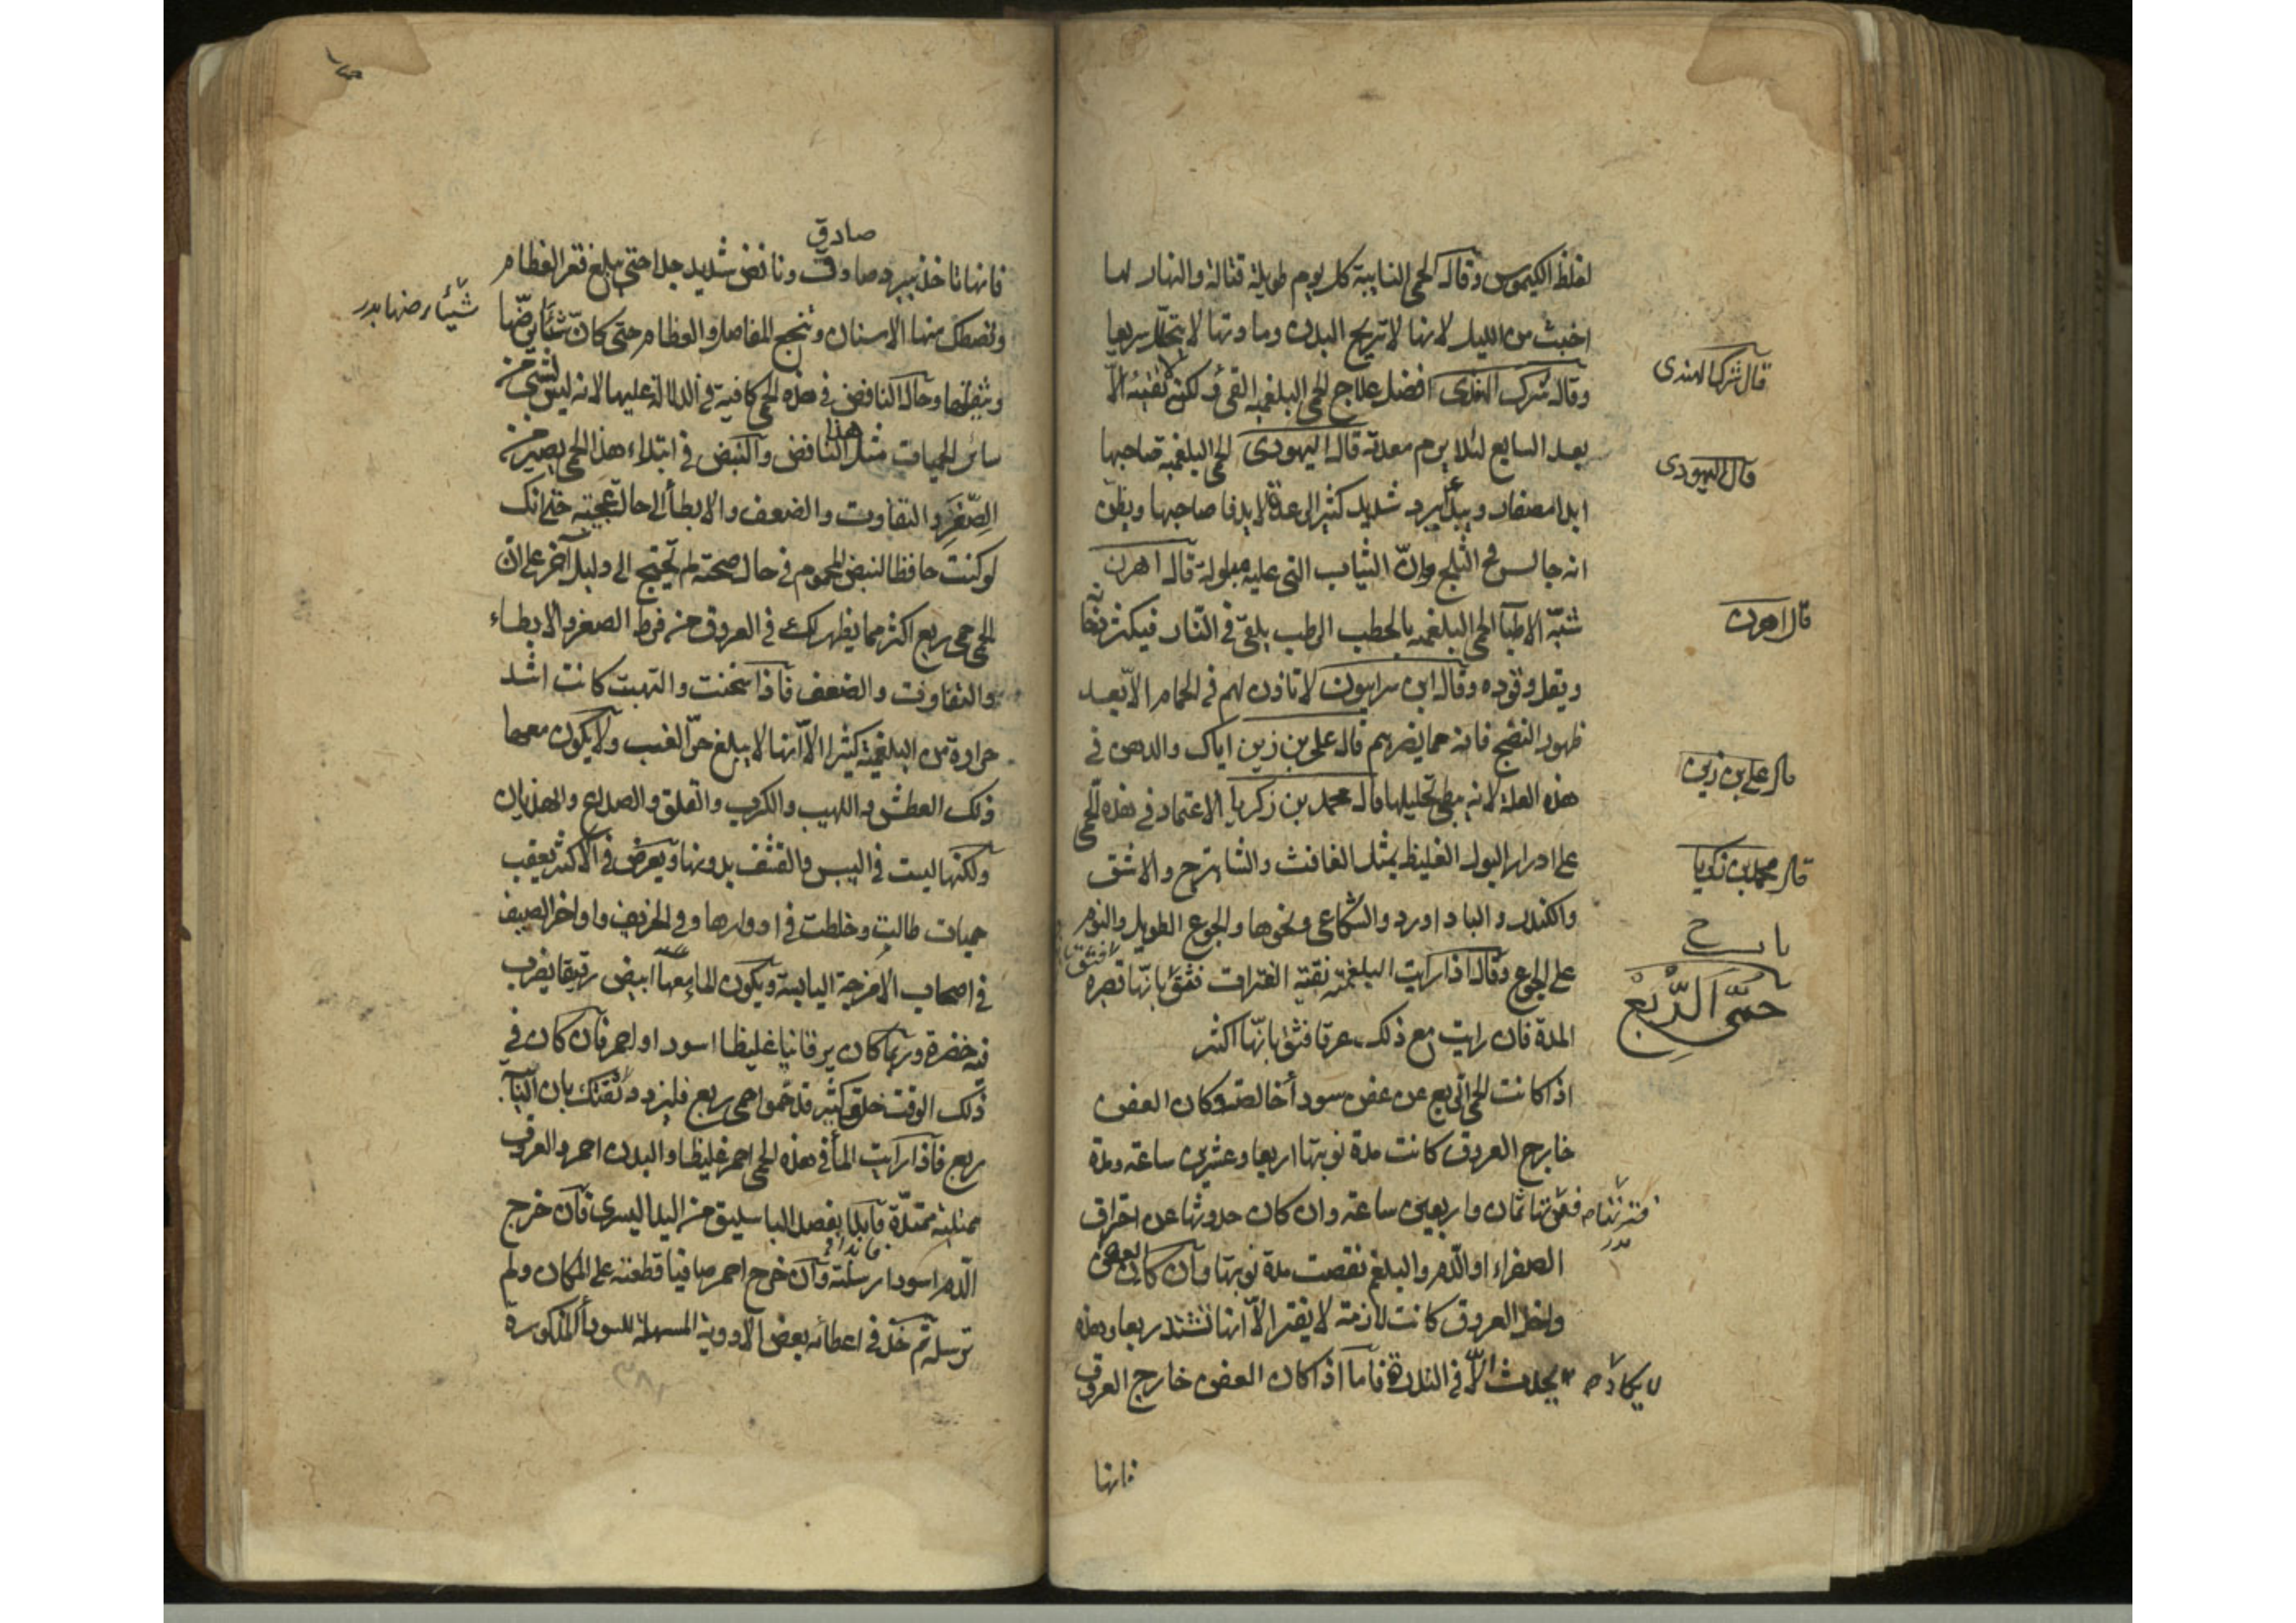 لغلظ الكيموس وقال الحمى النايبة كل يوم طويلة قتالة والنهار لها
اخبث من الليل لانها لا تريح البدن وما دتها لا يتحلل سريعا
قال شرك الهندى
وقال شرك الهندى افضل علاج الحمى البلغمية القى ولكن لا تقيئه الّا
بعد السابع لئلا يرم معدته قال اليهودى الحمى البلغمية صاحبها
قال اليهودى
ابدا مصفار ويبدأ ببرد شديد كثير الى عدة لا يدفا صاحبها ويظن
انه جالس فى الثلج وانّ الثياب التى عليه مبلولة قال اهرن
قال اهرن
شبّه الاطبآ الحمى البلغمية بالحطب الرطب يلقى فى النار فيكثر دخا
ويقل وقوده وقال ابن سرابيون لا تاذن لهم فى الحمام الّا بعد
ظهور النضج فانه مما يضرهم قال على بن زين اياك والدهن فى
قال على بن زين
هذه العلة لانه يبطى تحليلها قال محمد بن زكريا الاعتماد فى هذه الحمى
قال محمد بن زكريا
على ادرار البول الغليظ بمثل الغافث والشاهترج والاشق
والكندر والباداورد والشكاعى ونحوها والجوع الطويل والنوم
باب
على الجوع وقال اذا رايت البلغمية نقية الفترات فثق بانّها قصيرة
فثق
حمّى الرّبع
المدة فان رايت مع ذلك عرقا فثق بانّها اكثر
اذا كانت الحمى الربع عن عفن سودآ خالصة وكان العفن
خارج العروق كانت مدة نوبتها اربعا وعشرين ساعة ومدة
فترتها ثمان واربعين ساعة وان كان حدوثها عن احتراق
فترتها
بدر
الصفراء او الدم والبلغم نقصت مدة نوبتها وان كان العفن
داخل العروق كانت لازمة لا يفتر الّا انها تشتد ربعا وهذه
لا يكاد
يحدث الّا فى الندرة فامّا اذا كان العفن خارج العروق
فانها
صادق
فانها تاخذ ببرد صادق ونافض شديد جدا حتى يبلغ قعر العظام
وتصطك منها الاسنان وتنجج المفاصل والعظام حتى كانّ شيئا يرضّها
شيئا يرضها بدر
ويثقلها وحال النافض فى هذه الحمى كافية فى الدلالة عليها لانه ليس لشى من
سائر الحميات مثل هذا النافض والنبض فى ابتداء هذا الحمى يصير من
الصّغر والتفاوت والضعف والابطأ الى حالة عجيبة حتى انك
لو كنت حافظا لنبض المحموم فى حال صحته لم تحتج الى دليل آخر على انّ
الحمى حمى ربع اكثر مما يظهر لك فى العروق من فرط الصغر والابطاء
والتفاوت والضعف فاذا سخنت والتهبت كانت اشد
حرارة من البلغمية كثيرا الّا انها لا يبلغ حرّ الغب ولا يكون معها
ذلك العطش واللهيب والكرب والقلق والصداع والهذيان
ولكنها ليست فى اليبس والقشف بدونها ويعرض فى الاكثر يعقب
حميات طالت وخلطت فى ادوارها وفى الخريف واواخر الصيف
فى اصحاب الامزجة اليابسة ويكون الماء معها ابيض رقيقا يضرب
فيه خضرة وربما كان يرقانيا غليظا اسود او احمر فان كان فى
ذلك الوقت خلق كثير قد حموا حمى ربع فليزدد ثقتك بان النآ.
ربع فاذا رايت المأ فى هذه الحمى احمر غليظا والبدن احمر والعروق
ممتلية متمدّدة فابدأ بفصد الباسليق من اليد اليسرى فان خرج
الدم اسود ارسلته وان خرج احمر صافيا قطعته على المكان ولم
ترسله ثم خذ فى اعطائه بعض الادوية المسهلة للسودأ المذكورة